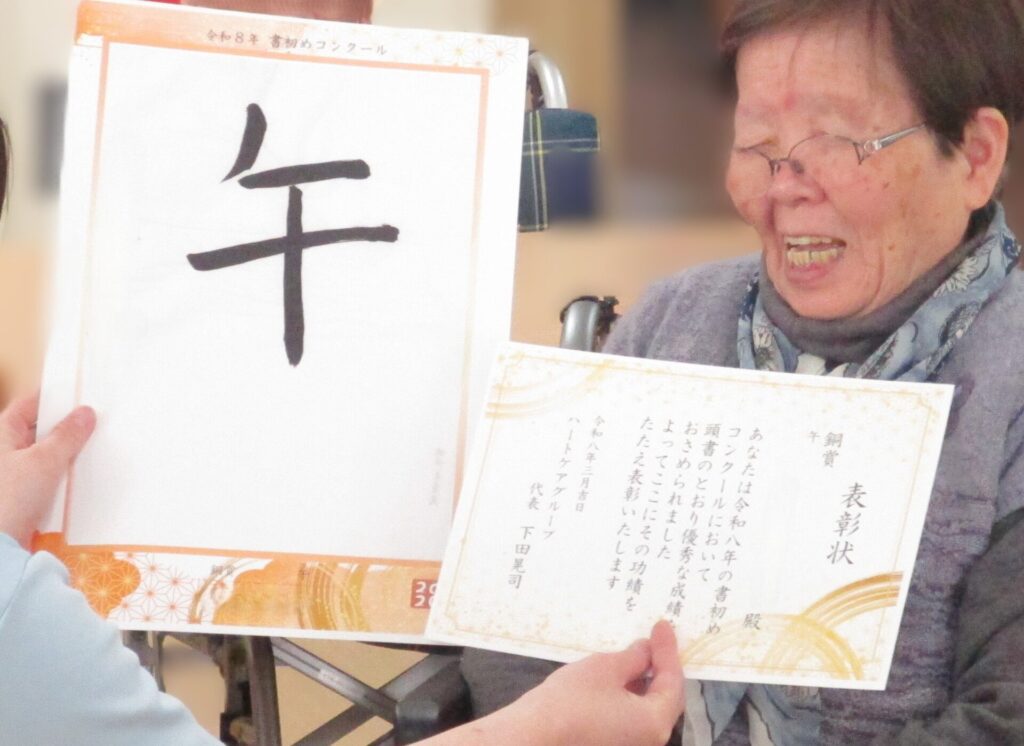 令和8年 書初めコンクール
午
表彰状
銅賞
午
殿
あなたは令和八年の書初め
コンクールにおいて
頭書のとおり優秀な成績
おさめられました
よってここにその功績を
たたえ表彰いたします
令和八年三月吉日
ハートケアグループ
代表 下田晃司